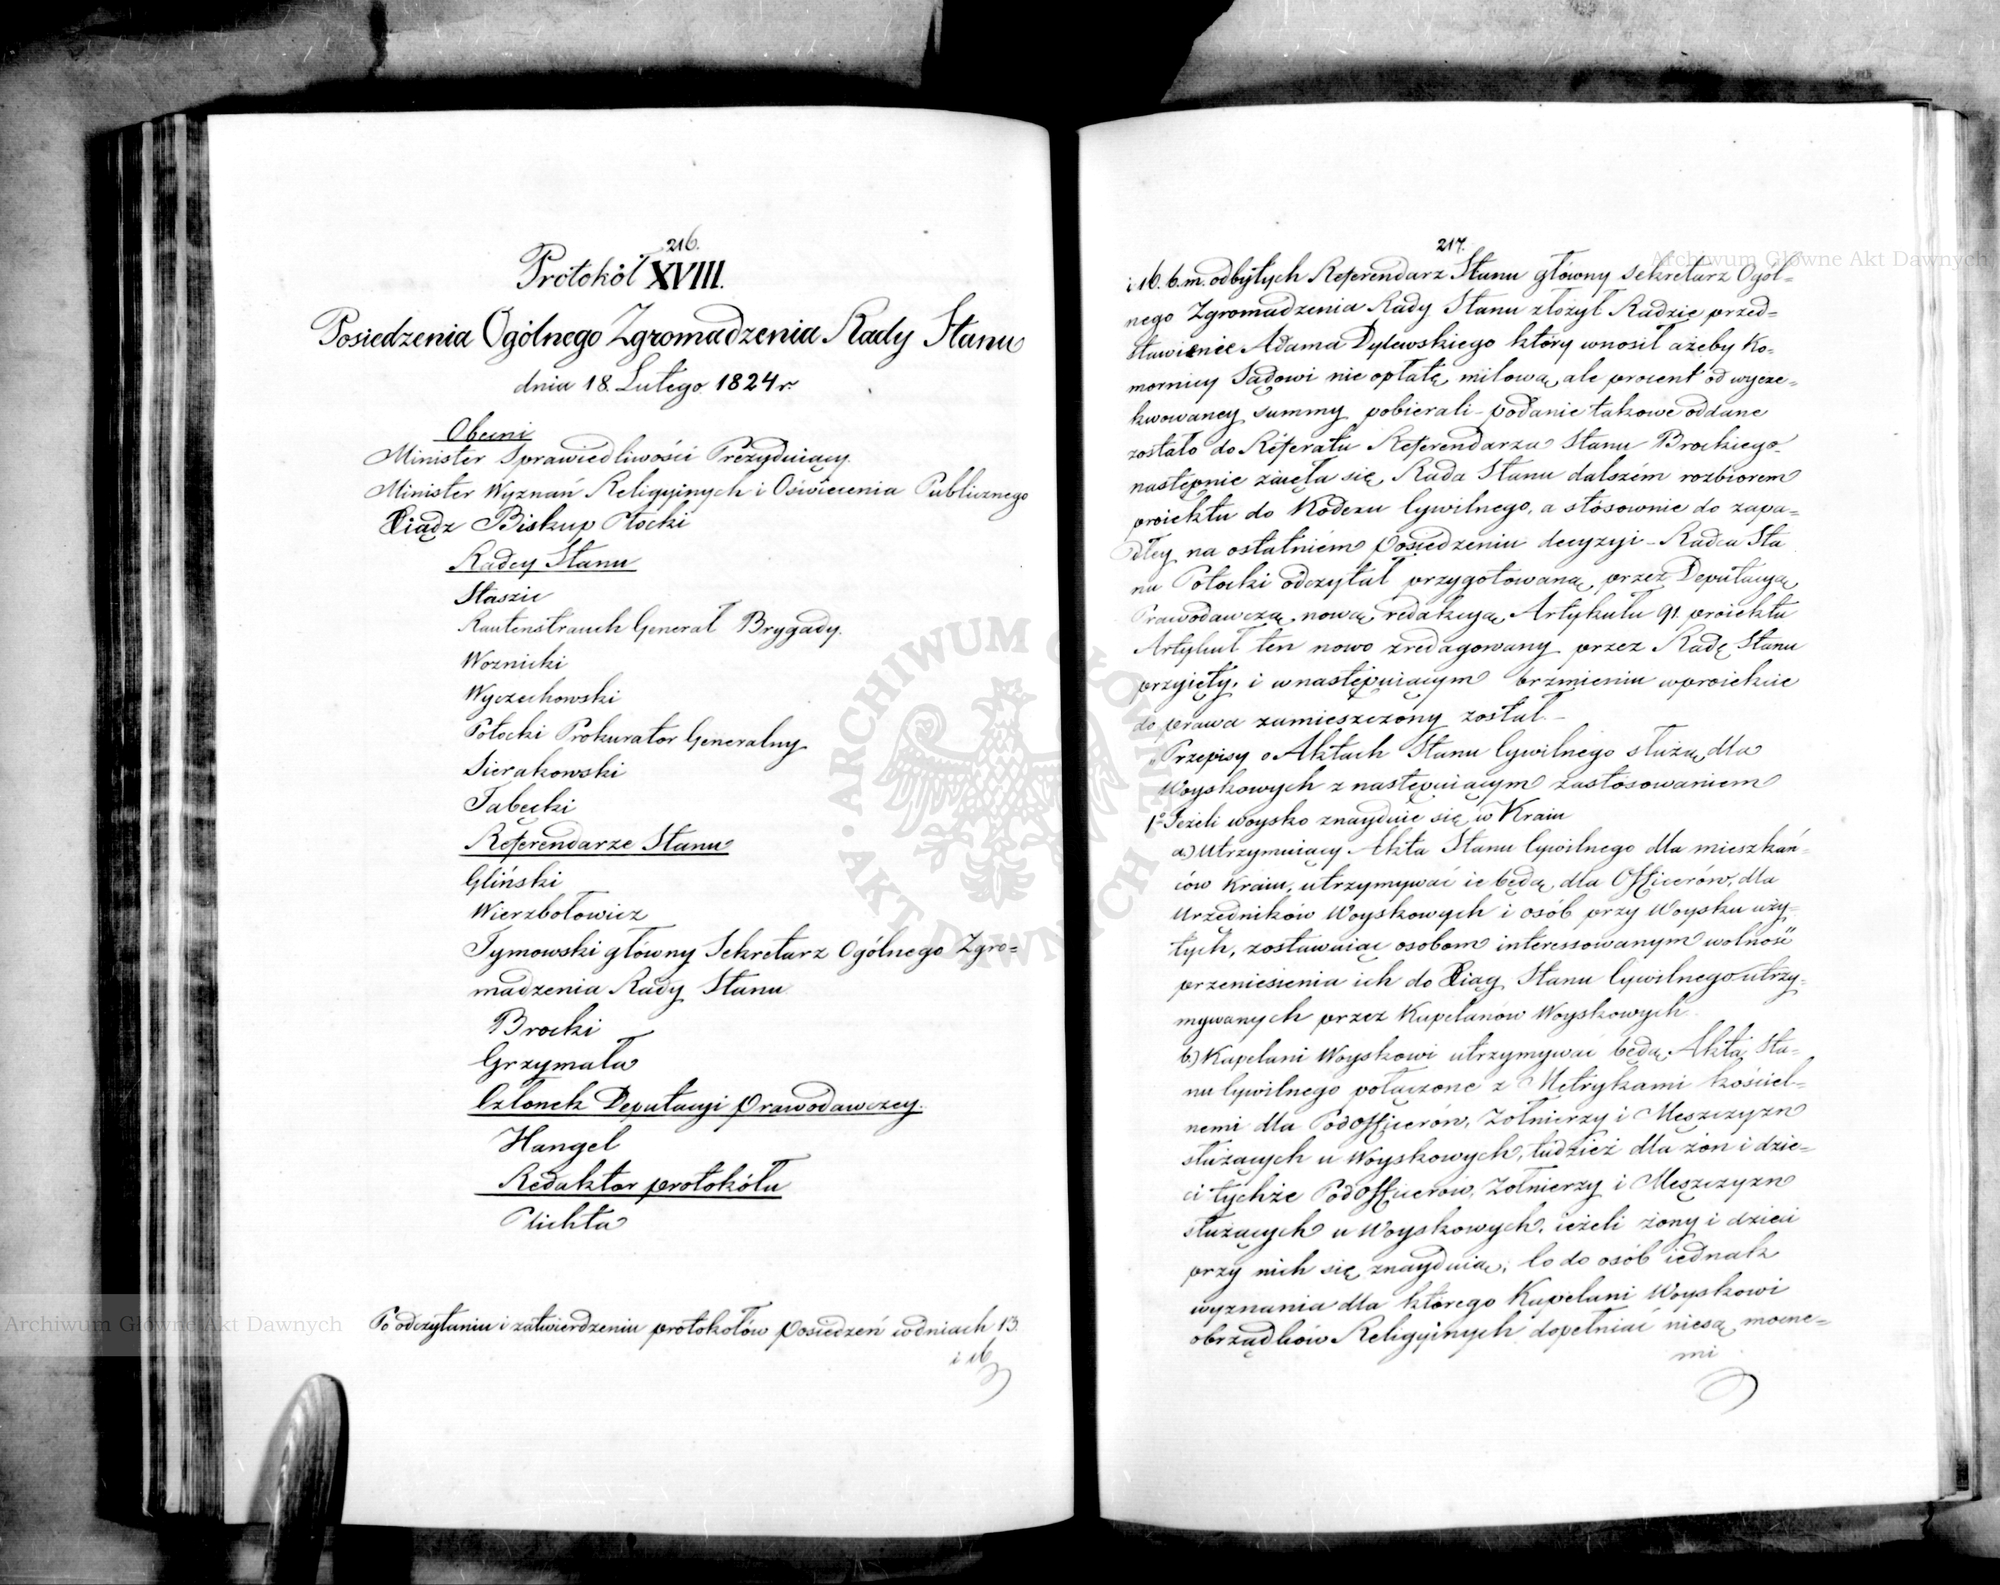 216.
Protokół XVIII.
Posiedzenia Ogólnego Zgromadzenia Rady Stanu
dnia 18. Lutego 1824 r
Obecni
Minister Sprawiedliwości Prezyduiący.
Minister Wyznań Religyinych i Oświecenia Publicznego
Xiądz Biskup Płocki
Radcy Stanu
Staszic
Rautenstrauch Generał Brygady.
Woznicki
Wyczechowski
Potocki Prokurator Generalny
Sierakowski
Tabęcki
Referendarze Stanu
Gliński
Wierzbołowicz
Tymowski główny Sekretarz Ogólnego Zgro=
madzenia Rady Stanu
Brocki
Grzymała
Członek Deputacyi Prawodawczey.
Hangel
Redaktor protokółu
Plichta
Po odczytaniu i zatwierdzeniu protokołów posiedzeń w dniach 13.
i 16
217.
i 16. b. m. odbyłych Referendarz Stanu główny Sekretarz Ogól=
nego Zgromadzenia Rady Stanu złożył Radzie przed=
stawienie Adama Dylewskiego który wnosił ażeby Ko=
mornicy Sądowi nie opłatę milową, ale procent od wyeze=
kwowaney summy pobierali – podanie takowe oddane
zostało do Referatu Referendarza Stanu Brockiego
następnie zaięła się Rada Stanu dalszém rozbiorem
proiektu do Kodexu Cywilnego, a stósownie do zapa=
dłey na ostatniém posiedzeniu decyzyi – Radca Sta
nu Potocki odczytał przygotowaną przez Deputacyą
Prawodawczą nową redakcyą Artykułu 91. proiektu
Artykuł ten nowo zredagowany przez Radę Stanu
przyięty, i w następuiącym brzmieniu w proiekcie
do prawa zamieszczony został. –
„Przepisy o Aktach Stanu Cywilnego służą dla
Woyskowych z następuiącym zastosowaniem
1º Jeżeli woysko znayduie się w Kraiu
a) Utrzymuiący Akta Stanu Cywilnego dla mieszkań=
ców Kraiu, utrzymywać ie będą dla Officerów, dla
Urzędników Woyskowych i osób przy Woysku uży=
tych, zostawuiąc osobom interessowanym wolność
przeniesienia ich do Xiąg Stanu Cywilnego utrzy=
mywanych przez Kapelanów Woyskowych.
b) Kapelani Woyskowi utrzymywać będą Akta Sta=
nu Cywilnego połączone z Metrykami kościel=
nemi dla PodOfficerów, Żołnierzy i Męszczyzn
służących u Woyskowych, tudzież dla żon i dzie=
ci tychże PodOfficerów, Żołnierzy i Męszczyzn
służących u Woyskowych, ieżeli żony i dzieci
przy nich się znayduią; Co do osób iednak
wyznania dla którego Kapelani Woyskowi
obrządków Religyinych dopełniać niesą mocne=
mi
Archiwum Główne Akt Dawnych
Archiwum Główne Akt Dawnych
ARCHIWUM GŁÓWNE AKT DAWNYCH